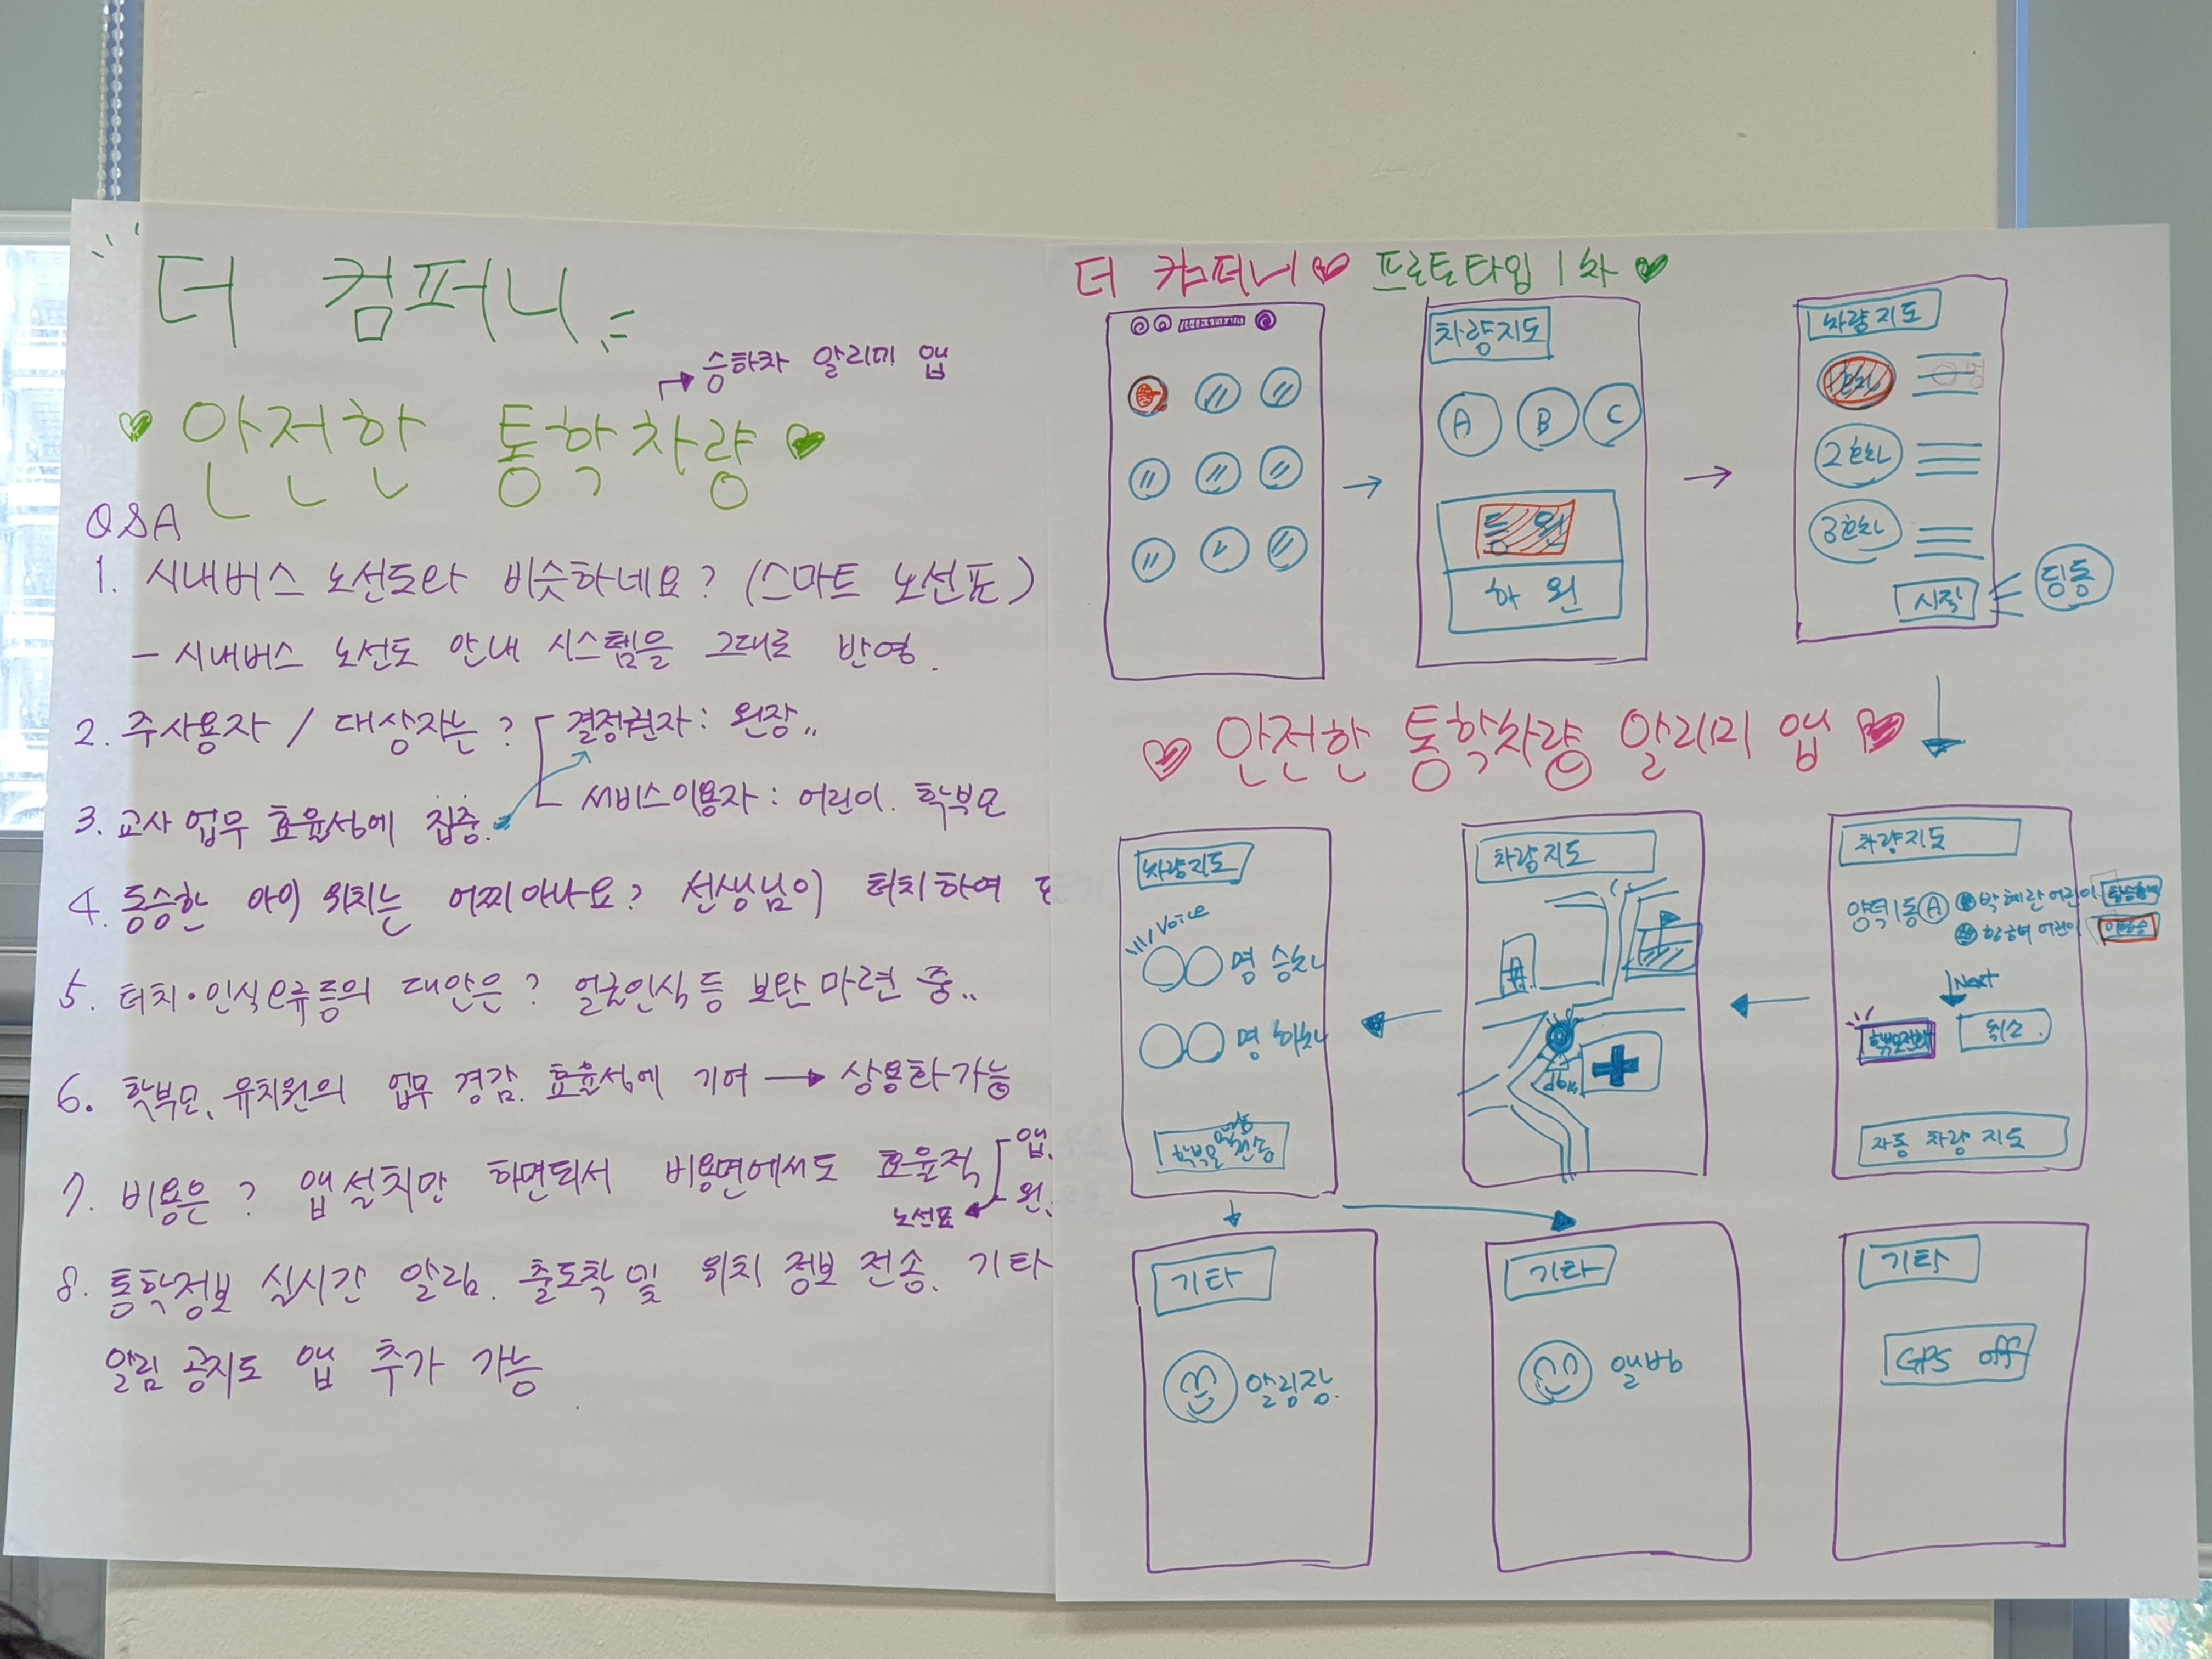 더 컴퍼니
승하차 알리미 앱
안전한 통학차량
Q&A
1. 시내버스 노선도와 비슷하네요? (스마트 노선표)
- 시내버스 노선도 안내 시스템을 그대로 반영.
2. 주사용자 / 대상자는? 결정권자 : 원장..
서비스이용자 : 어린이. 학부모
3. 교사 업무 효율성에 집중.
4. 동승한 아이 위치는 어찌아나요? 선생님이 터치하여
5. 터치·인식오류등의 대안은? 얼굴인식 등 보완 마련 중..
6. 학부모, 유치원의 업무 경감. 효율성에 기여 → 상용화가능
7. 비용은? 앱설치만 하면되서 비용면에서도 효율적
앱.
원.
노선표
8. 통학정보 실시간 알림. 출도착 및 위치 정보 전송. 기타
알림 공지도 앱 추가 가능
더 컴퍼니 프로토타입 1차
차량지도
A B C
등 원
하 원
차량지도
1호차
2호차
3호차
시작
딩동
안전한 통학차량 알리미 앱
차량지도
Voice
명 승차
명 하차
학부모 전송
차량지도
차량지도
양덕1동 A 박혜란 어린이
어린이
Next
취소
자동 차량 지도
기타
알림장.
기타
앨범
기타
GPS off